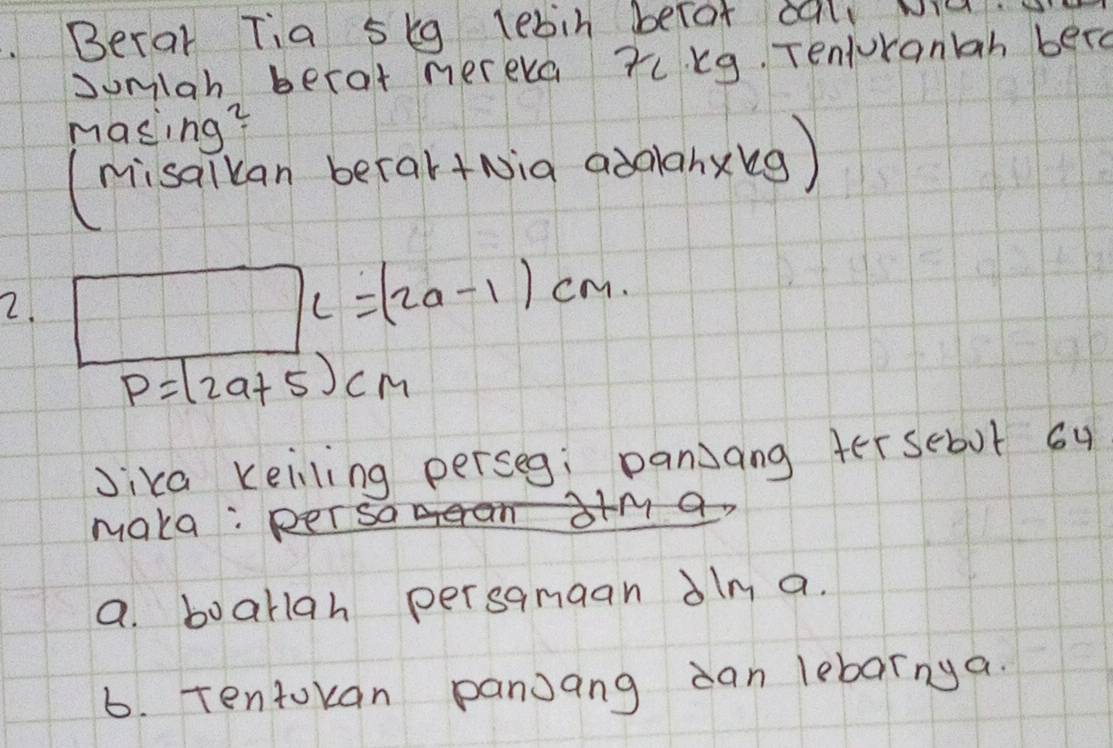 Berat Tia 5 kg lebih berat dari Nia.
Jumlah berat mereka kg. Tentukanlah
masing?
(Misalkan berat + Nia adalah x kg)
2. L = (2a - 1) cm.
P = (2a + 5) cm
Jika Keliling persegi panjang tersebut 64
maka : persamaan dlm a,
a. buatlah persamaan dlm a.
b. Tentukan panjang dan lebarnya.